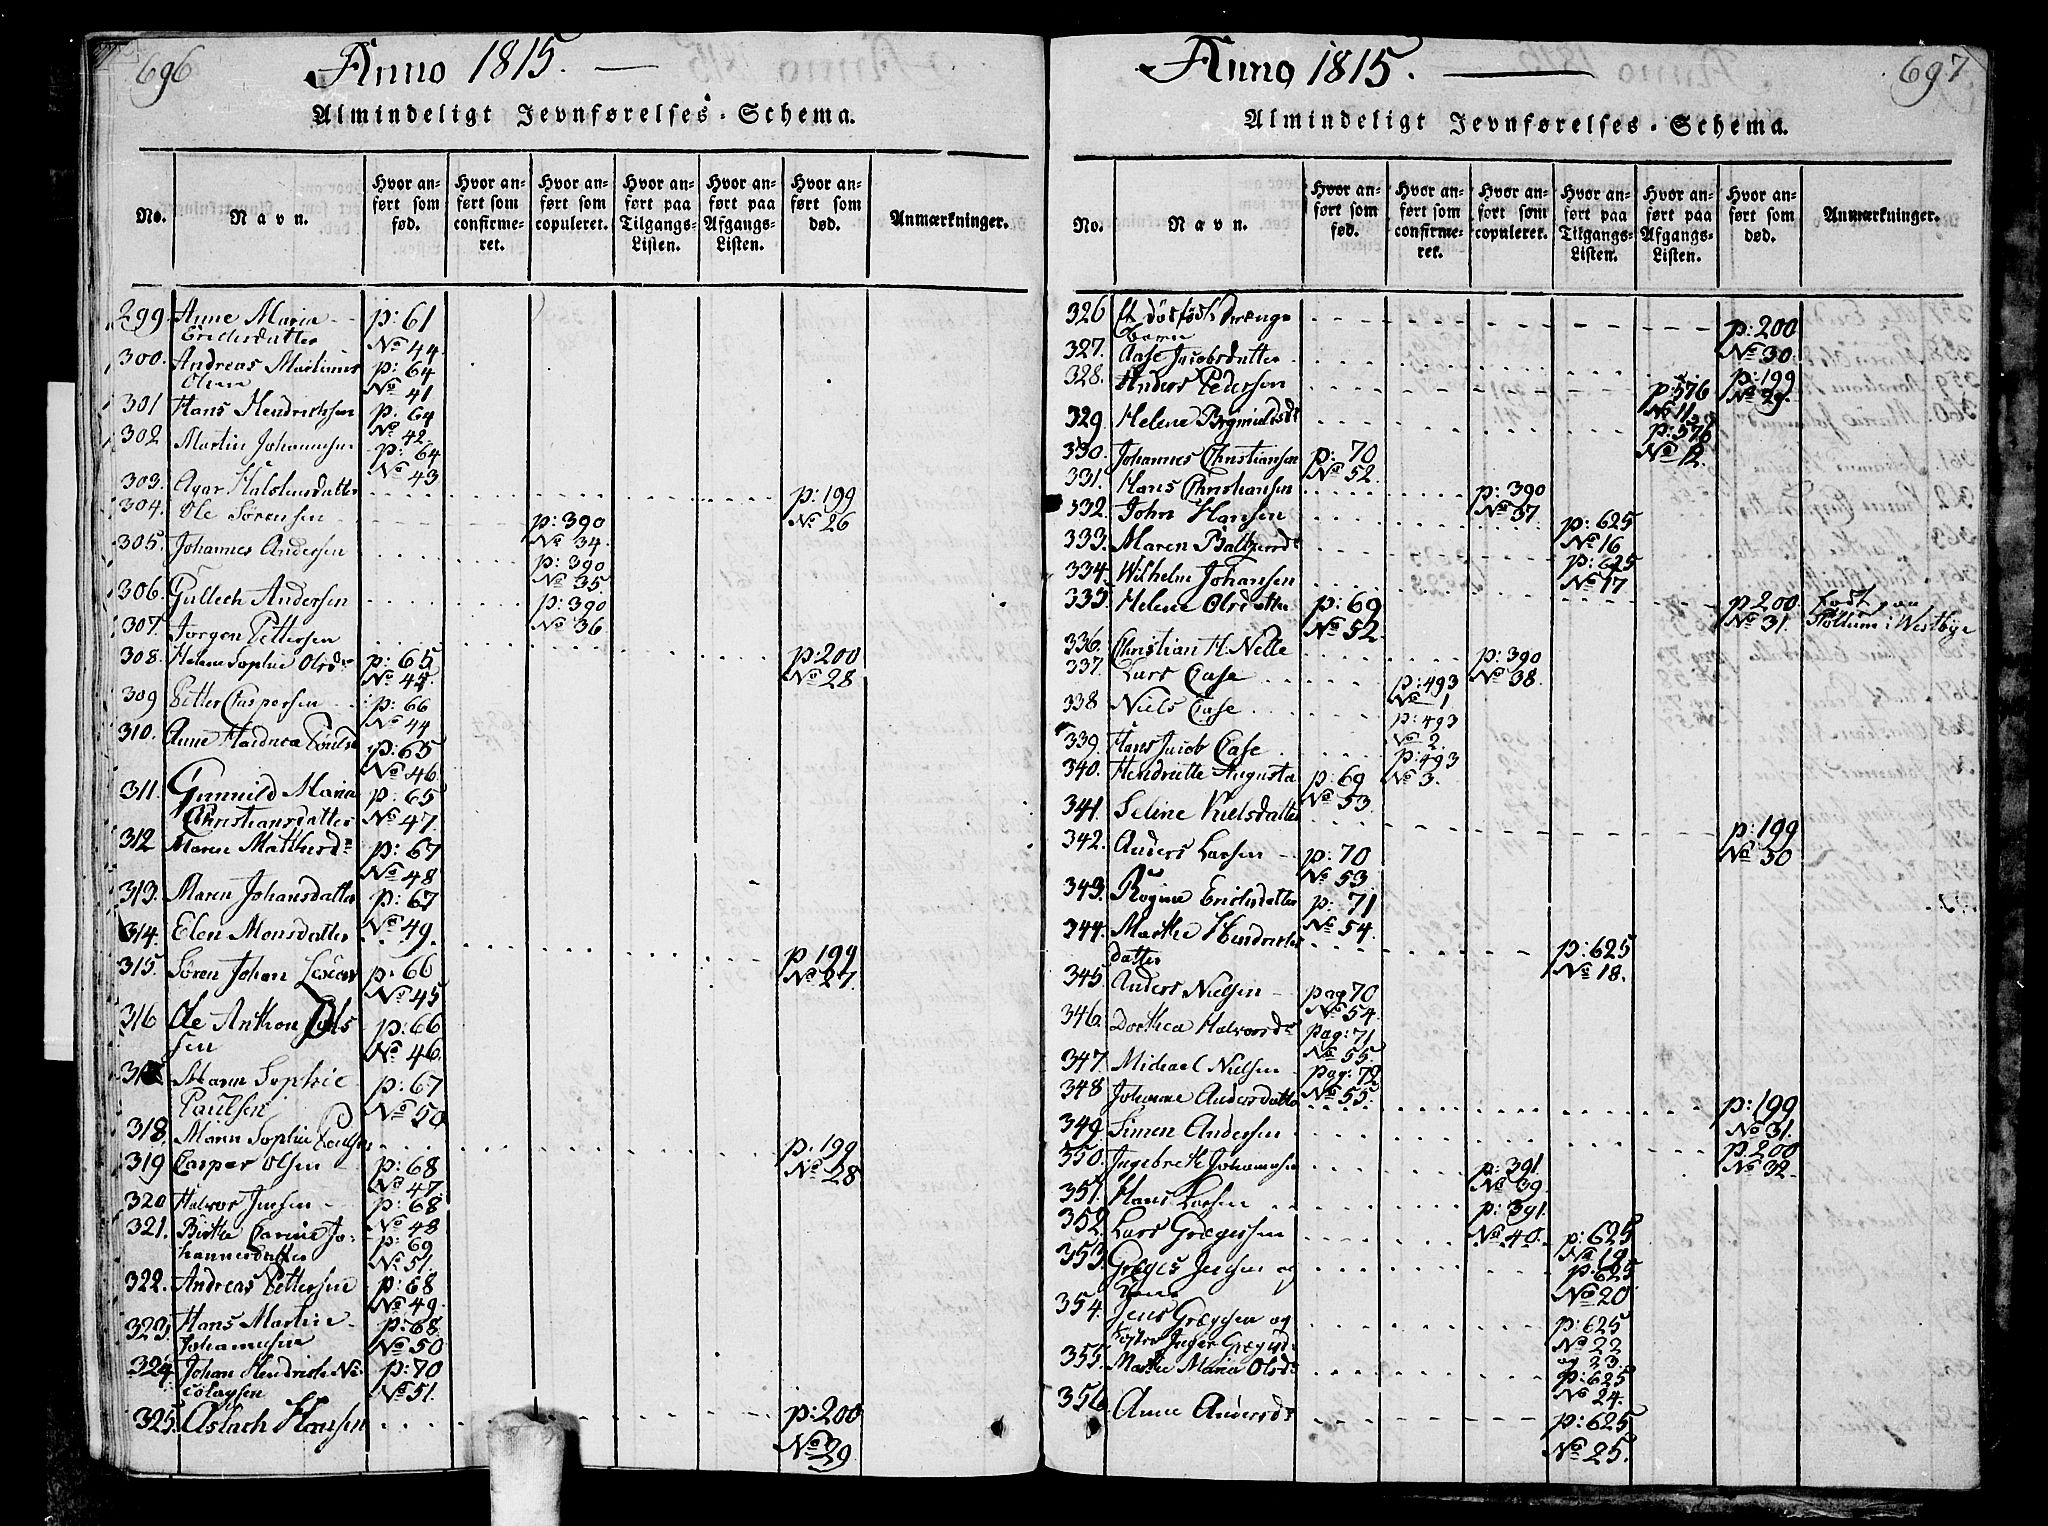 696
Anno 1815.
Almindeligt Jevnførelses-Schema.
No.
Navn.
Hvor an-
ført som
fød.
Hvor an-
ført som
confirme-
ret.
Hvor an-
ført som
copuleret.
Hvor an-
ført paa
Tilgangs-
Listen.
Hvor an-
ført paa
Afgangs-
Listen.
Hvor an-
ført som
død.
Anmærkninger.
299 Anne Maria p: 61
Erichsdatter No 44
300. Andreas Martinus p: 64
Olsen No 41
301 Hans Hendrichsen p: 64
No 42
302 Martin Johannesen p: 64
No 43
303. p: 199
No 26
304. Ole Sörensen p: 390
No 34.
305. Johannes Andersen p: 390
No 35
306. Gullech Andersen p: 390
No 36
307. Jørgen Pettersen p: 200
No 28
308. Helene Sophie Olsdr p: 65
No 45
309 Petter Caspersen p: 66
No 44
310. Anne p: 65
No 46
311. Gunnild Maria p: 65
Christiansdatter No 47.
312 Maren p: 67
No 48
313. Maren Johansdatter p: 67
No 49.
314. Elen Monsdatter p 199
No 27.
315. Sören Johan p: 66
No 45
316 Ole Anthon Pouls p: 66
sen No 46
Maren Sophie p: 67
Paulsen No 50
318. Maren Sophie p: 199
No 28
319 Casper Olsen p: 68
No 47
320 Halvor Jensen p: 68
No 48
321. Birthe Carine Jo- p: 69
hannesdatter No 51.
322. Andreas Pettersen p: 68
No 49.
323. Hans Martin p: 68
Johannesen No 50
324 Johan Hendrich Ni- p: 70
colaysen No 51.
325. Aslach Hansen p: 200
No 29
697
Anno 1815.
Almindeligt Jevnførelses-Schema.
No.
Navn.
Hvor an-
ført som
fød.
Hvor an-
ført som
confirme-
ret.
Hvor an-
ført som
copuleret.
Hvor an-
ført paa
Tilgangs-
Listen.
Hvor an-
ført paa
Afgangs-
Listen.
Hvor an-
ført som
død.
Anmærkninger.
326 Et dödfödt Drenge p: 200
Barn No 30.
327. Aase Jacobsdatter p: 199
No 29.
328. Anders Pedersen p: 576
No 11
329 Helene p: 576
No 12.
330. Johannes Christiansen p: 70
No 52.
331. Hans Christiansen p: 390
No 37.
332. John Hansen p: 625
No 16
333. Maren p: 625
No 17
334. Wilhelm Johansen p 200 Födt
No 31. i Westbye
335. Helene Olsdatter p: 69
No 52.
336. Christian H. Nelle p: 390
No 38.
337. Lars Case p: 493
No 1
338 Niels Case p: 493
No 2.
339. Hans Jacob Case p: 493
No 3.
340. Hendriette Augusta p: 69
No 53.
341. Seline Nielsdatter p: 199
No 30
342. Anders Larsen p: 70
No 53.
343. Regine Erichsdatter p: 71
No 54.
344. Marthe Hendrichs p: 625
datter No 18.
345. Anders Nielsen pag 70
No 54.
346. Dorthea Halvorsdr pag: 71
No 55.
347. Michael Nielsen pag: 72
No 55.
348 Johanne Andersdatter p: 199
No 31.
349. Simen Andersen p: 200
No 32
350. Ingebreth Johannesen p: 391.
No 39.
351. Hans Larsen p: 391.
No 40.
352. Lars Grægersen p: 625
No 19
353. Græges Jensen og p: 625
Kone No 20
354. Jens Grægersen og p: 625
Söster Inger No 22
og 23.
355. Marthe Maria Olsdr p: 625
No 24.
356. Anne Andersdr p: 625
No 25.